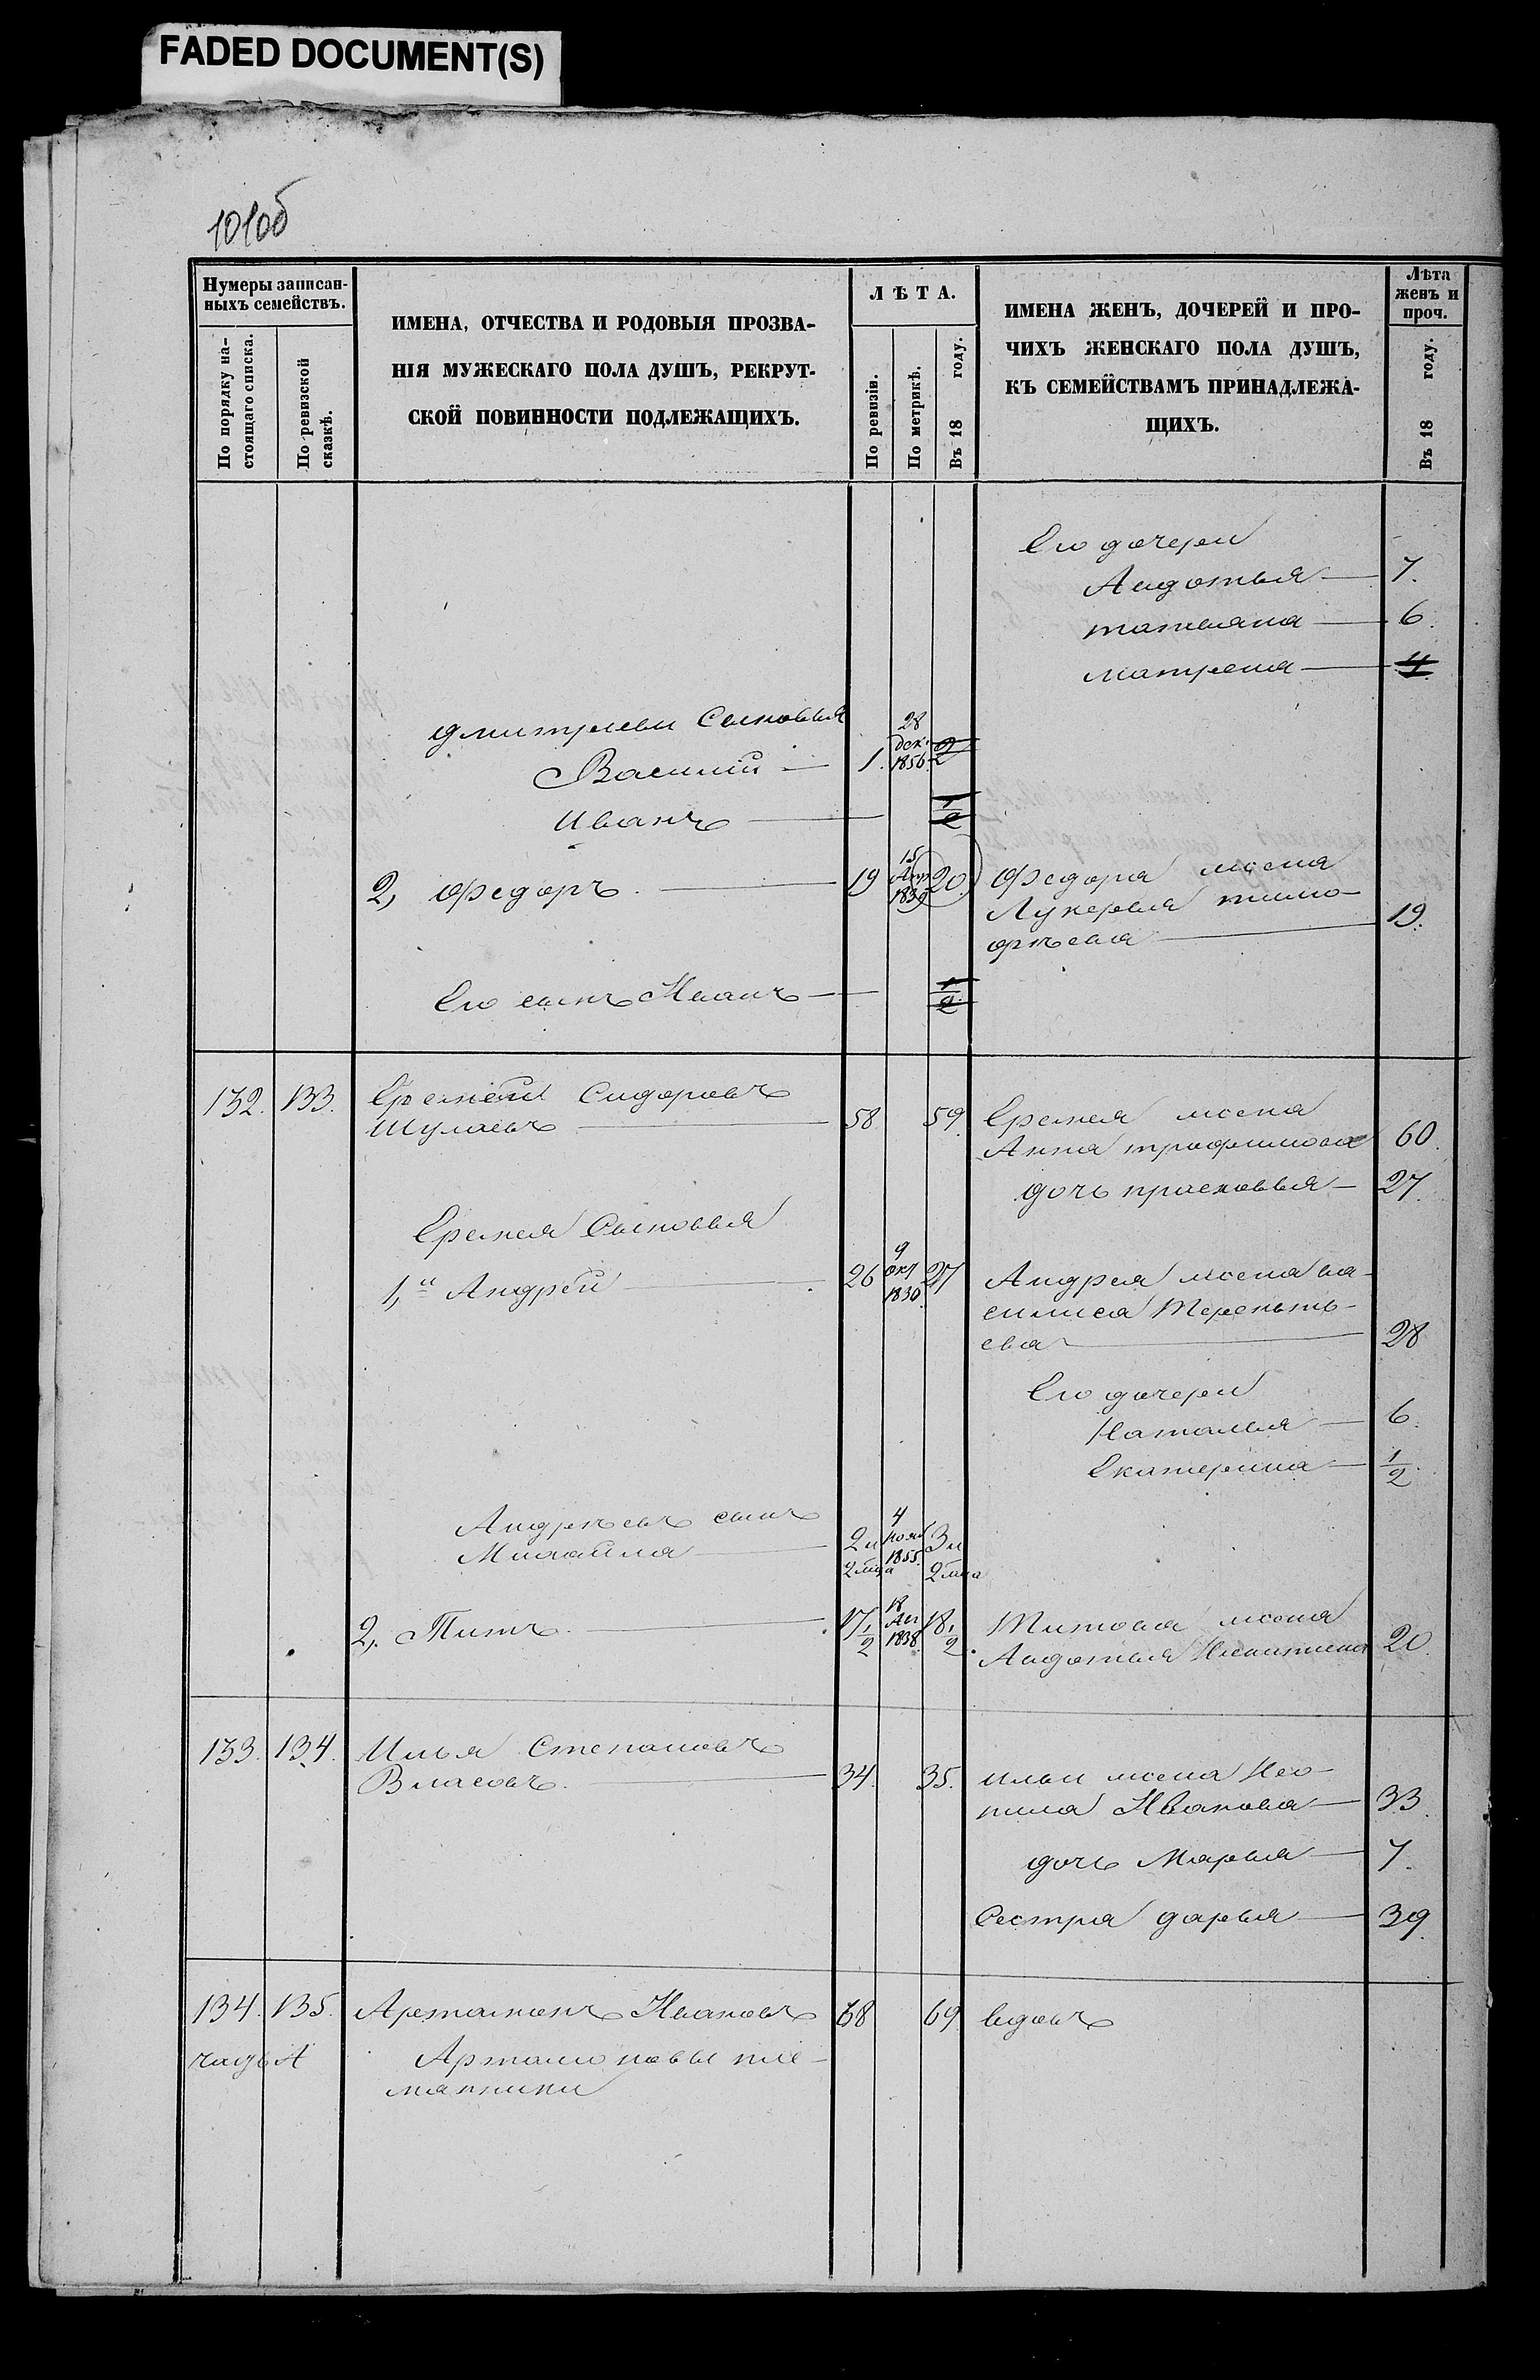 FADED DOCUMENT(S)
101об
Нумеры записан-
ныхъ семействъ.
По порядку на-
стоящаго списка.
По ревизской
сказкѣ.
ИМЕНА, ОТЧЕСТВА И РОДОВЫЯ ПРОЗВА-
НІЯ МУЖЕСКАГО ПОЛА ДУШЪ, РЕКРУТ-
СКОЙ ПОВИННОСТИ ПОДЛЕЖАЩИХЪ.
ЛѢТА.
По ревизіи.
По метрикѣ.
Въ 18 году.
ИМЕНА ЖЕНЪ, ДОЧЕРЕЙ И ПРО-
ЧИХЪ ЖЕНСКАГО ПОЛА ДУШЪ,
КЪ СЕМЕЙСТВАМЪ ПРИНАДЛЕЖА-
ЩИХЪ.
Лѣта
женъ и
проч.
Въ 18 году.
Его дочери
Авдотья — 7.
татьяна — 6.
матрена — 4.
дмитрievы Сыновья
Василий — 1. 28 дек. 1856. 2
Иванъ — 1/2
2, Федоръ — 19 15 Апр 1839 20. Федора жена
Лукерья тимо-
фѣева — 19.
Его сынъ Иванъ — 1/2
132. 133. Еремей Сидоровъ
Шулаевъ — 58 59. Еремея жена
Анна трафимова 60.
дочь прасковья — 27.
Еремея Сыновья
1,й Андрей — 26 9 окт 1830. 27 Андрея жена ва-
силиса Теренть-
ева — 28
Его дочери
Наталья — 6.
Екатерина — 1/2.
Андрѣевъ сынъ
Михайла — 2 и 2 мца 4 нояб 1855. 3 и 2 мца
2, Титъ — 17 1/2 18 1838. 18 1/2. Титова жена
Авдотья Никитина 20.
133. 134. Илья Степановъ
Власовъ. — 34. 35. ильи жена Нео-
нила Иванова — 33.
дочь Марья — 7.
Сестра дарья — 39.
134. 135. Артамонъ Ивановъ 68 69. вдовъ
часть А Артамоновы пле-
мянники